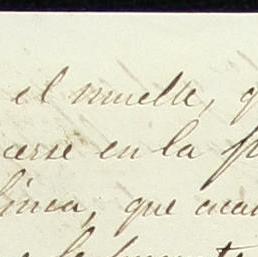 el muelle, q
carse en la p
linea, que cua